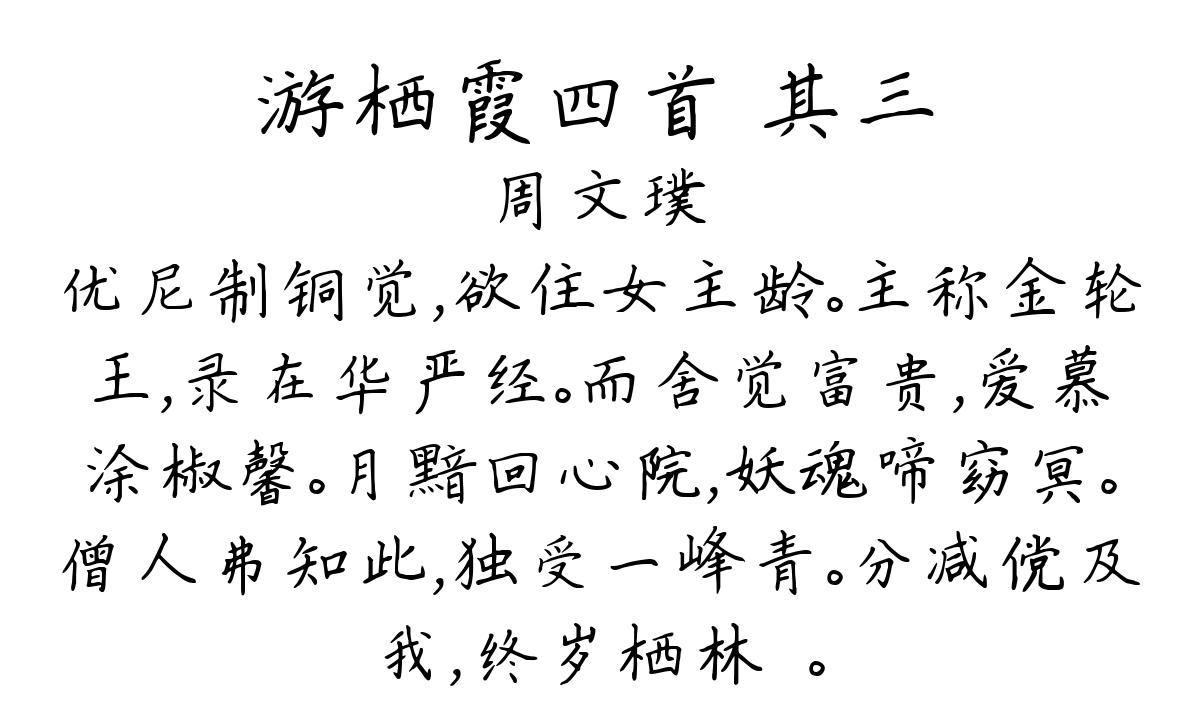 游栖霞四首 其三
周文璞
优尼制铜觉,欲住女主龄。主称金轮
王,录在华严经。而舍觉富贵,爱慕
涂椒馨。月黯回心院,妖魂啼窈冥。
僧人弗知此,独受一峰青。分减傥及
我,终岁栖林 。